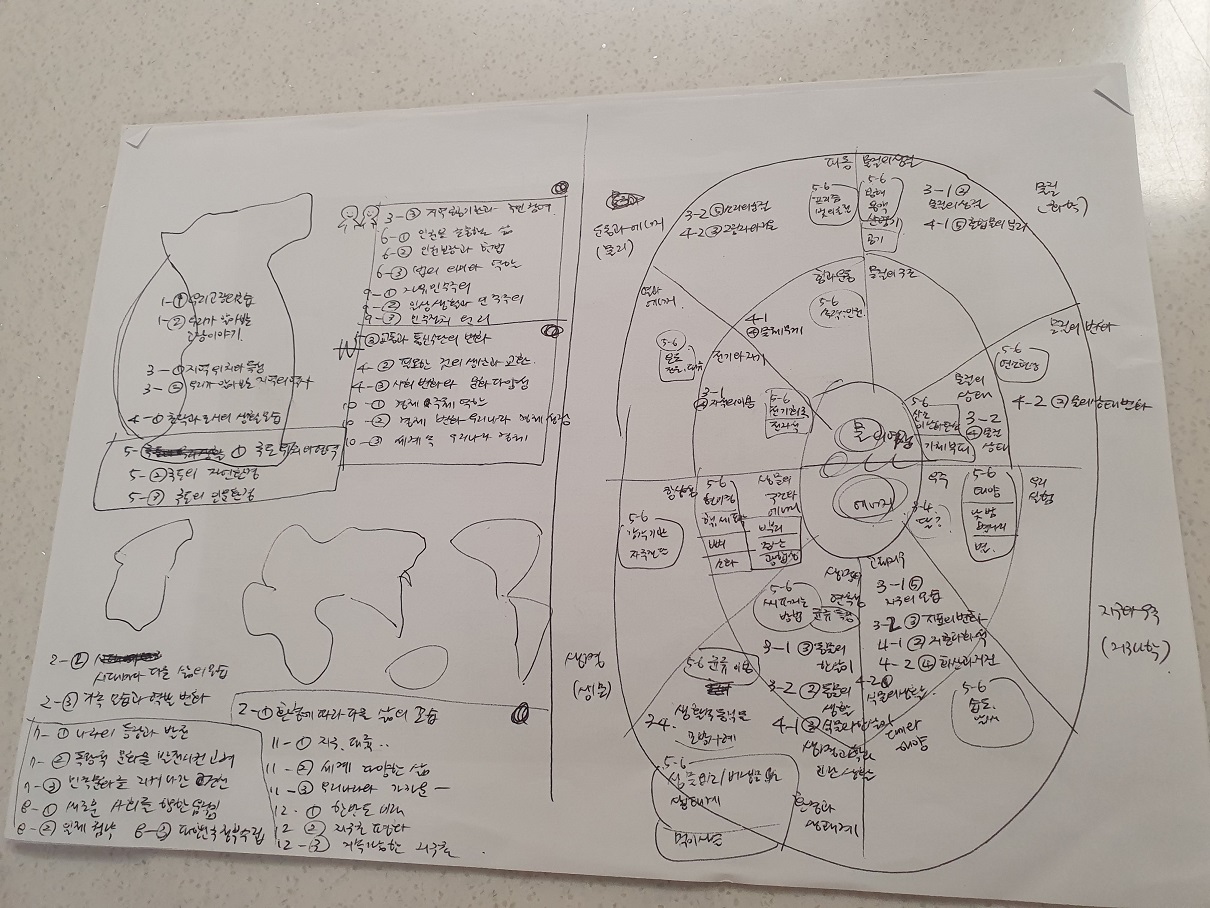 1-① 우리 고장의 모습
1-② 우리가 알아보는
고장이야기.
3-① 지역 위치와 특성
3-② 우리가 알아보는 지역의 역사
4-① 촌락과 도시의 생활모습
5- ① 국토 위치와 영역
5-② 국토의 자연환경
5-③ 국토의 인문환경
3-③ 지역 공공기관과 주민 참여.
6-① 인권을 존중하는 삶
6-② 인권보장과 헌법
6-③ 법의 의미와 역할
9-① 자유민주주의
9-② 일상생활과 민주주의
9-③ 민주정치 원리
③ 교통과 통신수단의 변화
4-② 필요한 것의 생산과 교환.
4-③ 사회 변화와 문화다양성
10-① 경제 주체 역할
10-② 경제 변화 우리나라 경제 성장
10-③ 세계 속 우리나라 경제
2-②
시대마다 다른 삶의 모습
2-③ 가족 모습과 역할 변화
7-① 나라의 등장과 발전
7-② 독창적 문화를 발전시킨 고려
7-③ 민족문화를 지켜나간 조선
8-① 새로운 사회를 향한 움직임
8-② 일제 침략 8-③ 대한민국정부수립
2-① 환경에 따라 다른 삶의 모습
11-① 지구. 대륙..
11-② 세계 다양한 삶
11-③ 우리나라와 가까운 -
12-① 한반도 미래
12 ② 지구촌 평화
12-③ 지속가능한 지구촌.
운동과 에너지
(물리)
3-2 ⑤ 소리의 성질
4-2 ③ 그림자와 거울
파동
5-6
물질의 성질
5-6
용해
용액
산염기
공기
3-1 ②
물질의 성질
4-1 ⑤ 혼합물의 분리
물질
(화학)
열과
에너지
5-6
온도
4-1
④ 물체 무게
힘과 운동
5-6
물질의 구조
물질의 변화
5-6
연소와 소화
4-2 ② 물의 상태 변화
전기와 자기
3-1
④ 자석의 이용
5-6
전기회로
전자석
물질
에너지
물질의
상태
5-6
산소
이산화탄소
기체 부피
3-2
④ 물질
상태
항상성
5-6
감각기관
자극전달
5-6
현미경
핵 세포
뼈
소화
생물의
구조와
에너지
뿌리
줄기
광합성
우주
3-4.
달?
5-6
태양
낮 밤
별자리
별.
우리
생명의
연속성
5-6
씨 퍼지는
방법
균류 특징
고체지구
3-1 ⑤
지구의 모습
3-2 ③ 지표의 변화
4-1 ② 지층과 화석
4-2 ④ 화산과 지진
지구와 우주
(지구과학)
생명
(생물)
5-6 균류 이용
3-1 ③ 동물의
한살이
3-2 ② 동물의
생활
4-1 ③ 식물의 한살이
4-2 ①
식물의 생활
3-4. 생활속 동식물
모방 사례
생명과학과
인간 생활
대기와
해양
5-6
습도.
5-6
생태계
먹이사슬
환경과
생태계